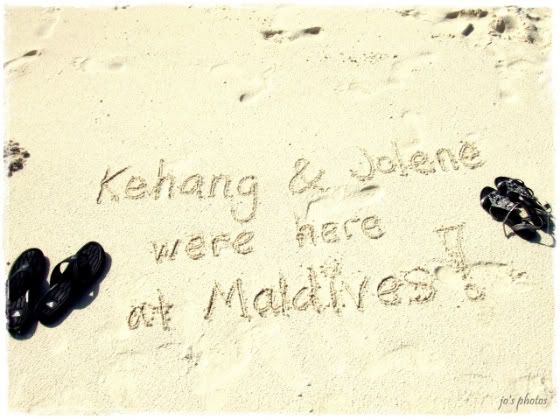 Kehang & Jolene
were here
at Maldives!
jo's photos